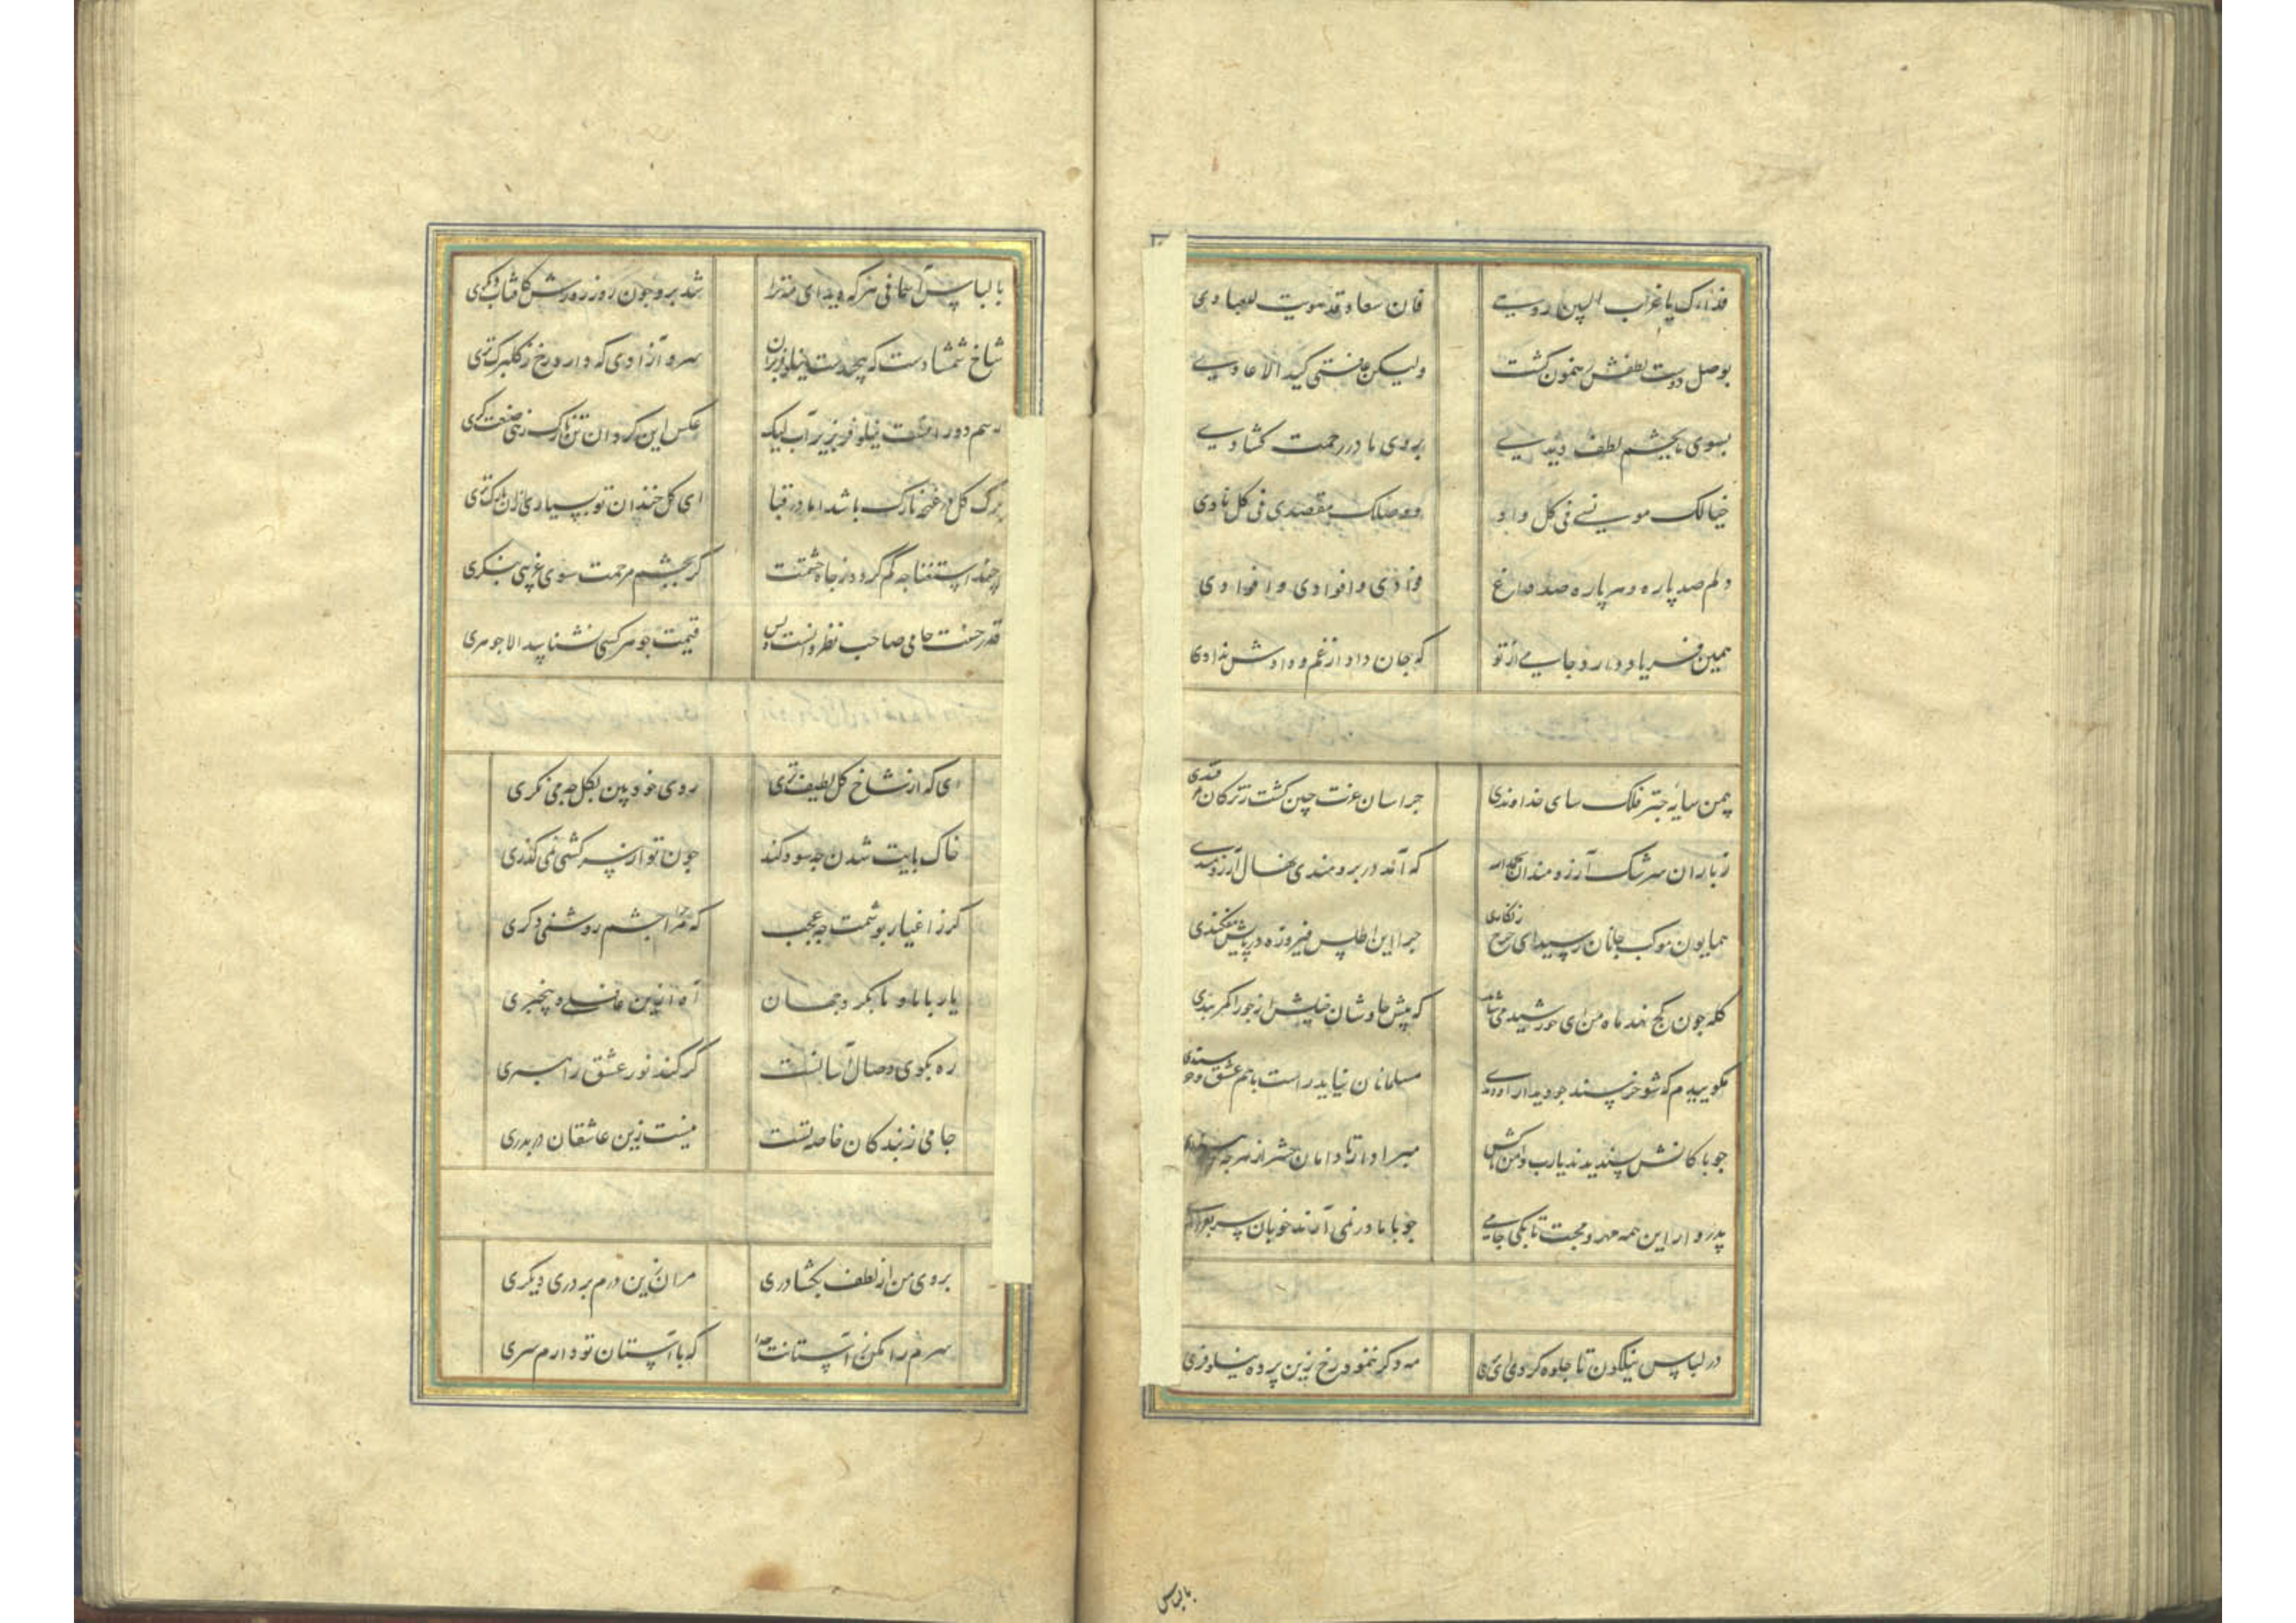 فدا، ک یا غراب البین روحے فان سعاد قد
بوصل دوست لطفش رهنمون گشت ولیکن عاقنی کید الاعادیے
بسوی ما بچشم لطف دیدیے بروی ما در رحمت کشادیے
خیالک مونسے فی کل واد ووصلک مقصدی فی کل نادی
دلم صد پاره وهر پاره صد داغ فوادی وافوادی وافوادی
همین فریاد دارد جامے از تو که جان داد از غم و دادش ندادی
چمن سایه چتر فلک سای خداوندی خراسان غیرت چین گشت ز ترکان
ز باران سرشک آرزومندان که آمد در برومندی نهال آرزومندی
همایون موکب جانان رسید ای چرخ زنکاری چرا این اطلس فیروزه در پایش نیفکندی
کله چون کج نهد ماه من ای خورشید می شاید که پیش چاوشان خیلش از جوزا کمر بندی
مکوییدم که شو خرسند مسلمانان نیاید راست باهم عشق و خرسندی
چو پاکانش پسندیدند یارب دامن پاکش مبرا دار تا دامان حشر از هر چه
پدروار این همه مهر و محبت تا بکی جامے چو با ما در نمی آرند خوبان سر
در لباس نیلکون تا جلوه کردی ای پری مه دکر ننمود رخ زین پرده نیلوفری
بالباس
بالباس آسمانی هرکه دید ای مه ترا شد برو چون روز روشن کافتاب دیگری
شاخ شمشادست که پیچیدست نیلوفر بران سرو آزادی که دارد رخ ز گلبرگ تری
رسم دور افتست نیلوفر بزیر آب لیک عکس این کرد آن تن نازک ز نی صنعت کری
برک کل در غنچه نازک باشد اما در قبا ای کل خندان تو بسیاری ازان نازکتری
چند استغنا چه کم گردد ز جاه حشمتت کر بچشم مرحمت سوی غریبی بنکری
قدر حسنت جامی صاحب نظر دانست و بس قیمت جوهر کسی نشناسد الا جوهری
ای که از شاخ کل لطیف تری روی خود بین بکل چه می نکری
خاک پایت شدن چه سود کند چون تو از سرکشی نمی کذری
کر ز اغیار پوشمت چه عجب که مرا چشم روشنی دکری
یار با ما و ما بکرد جهان آه ازین غافلے و بیخبری
ره بکوی وصال آسانست کر کند نور عشق راهبری
جامی از بندکان خاصه تست نیست زین عاشقان در بدری
بروی من از لطف بکشا دری مران زین درم بر در دیکری
سرم را مکن ز آستانت جدا که با آستان تو دارم سری